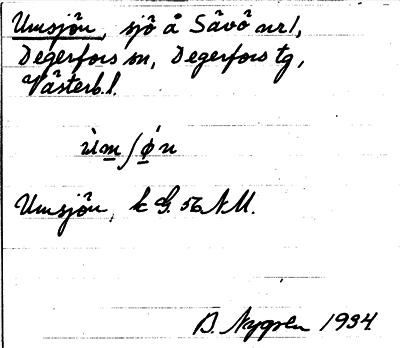 Umsjön, sjö å Sävö nr 1,
Degerfors sn, Degerfors tg,
Västerb. l.
ùmʃø̀n
Umsjön, k G. 56 N M.
B. Nygren 1934